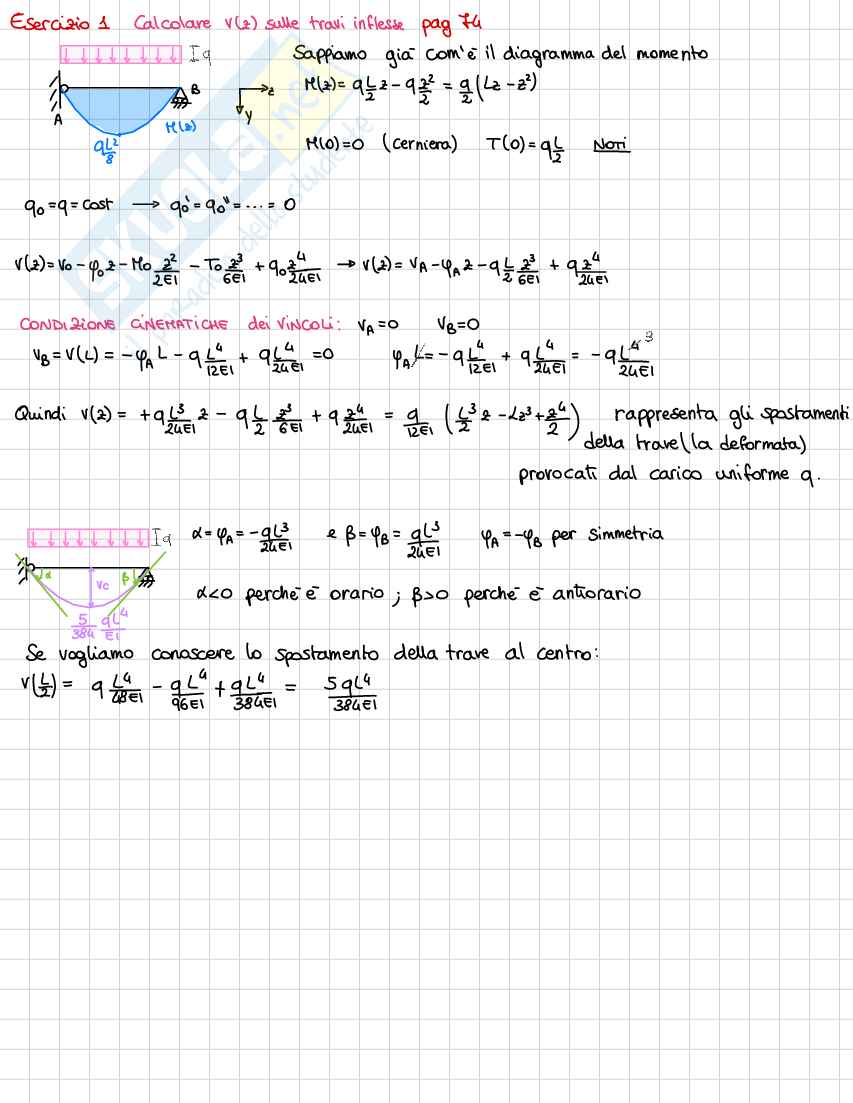 Esercizio 1 Calcolare v(z) sulle travi inflesse pag 74
q
Sappiamo già com'è il diagramma del momento
A B z y M(z) qL²/8
M(z) = q L/2 z - q z²/2 = q/2 (Lz - z²)
M(0)=0 (cerniera) T(0) = q L/2 Noti
q₀ = q = cost → q₀' = q₀'' = .... = 0
v(z) = v₀ - φ₀z - M₀ z²/2EI - T₀ z³/6EI + q₀ z⁴/24EI → v(z) = v_A - φ_A z - q L/2 z³/6EI + q z⁴/24EI
CONDIZIONE CINEMATICHE dei VINCOLI: v_A=0 v_B=0
v_B = v(L) = -φ_A L - q L⁴/12EI + q L⁴/24EI = 0 φ_A L = -q L⁴/12EI + q L⁴/24EI = -q L⁴ ³/24EI
Quindi v(z) = + q L³/24EI z - q L/2 z³/6EI + q z⁴/24EI = q/12EI (L³/2 z - Lz³ + z⁴/2) rappresenta gli spostamenti
della trave (la deformata)
provocati dal carico uniforme q.
q
α = φ_A = - qL³/24EI e β = φ_B = qL³/24EI φ_A = -φ_B per simmetria
α β v_C
α<0 perchè è orario ; β>0 perchè è antiorario
5/384 qL⁴/EI
Se vogliamo conoscere lo spostamento della trave al centro:
v(L/2) = q L⁴/48EI - qL⁴/96EI + qL⁴/384EI = 5qL⁴/384EI
SKUOLA.net
il paradiso dello studente